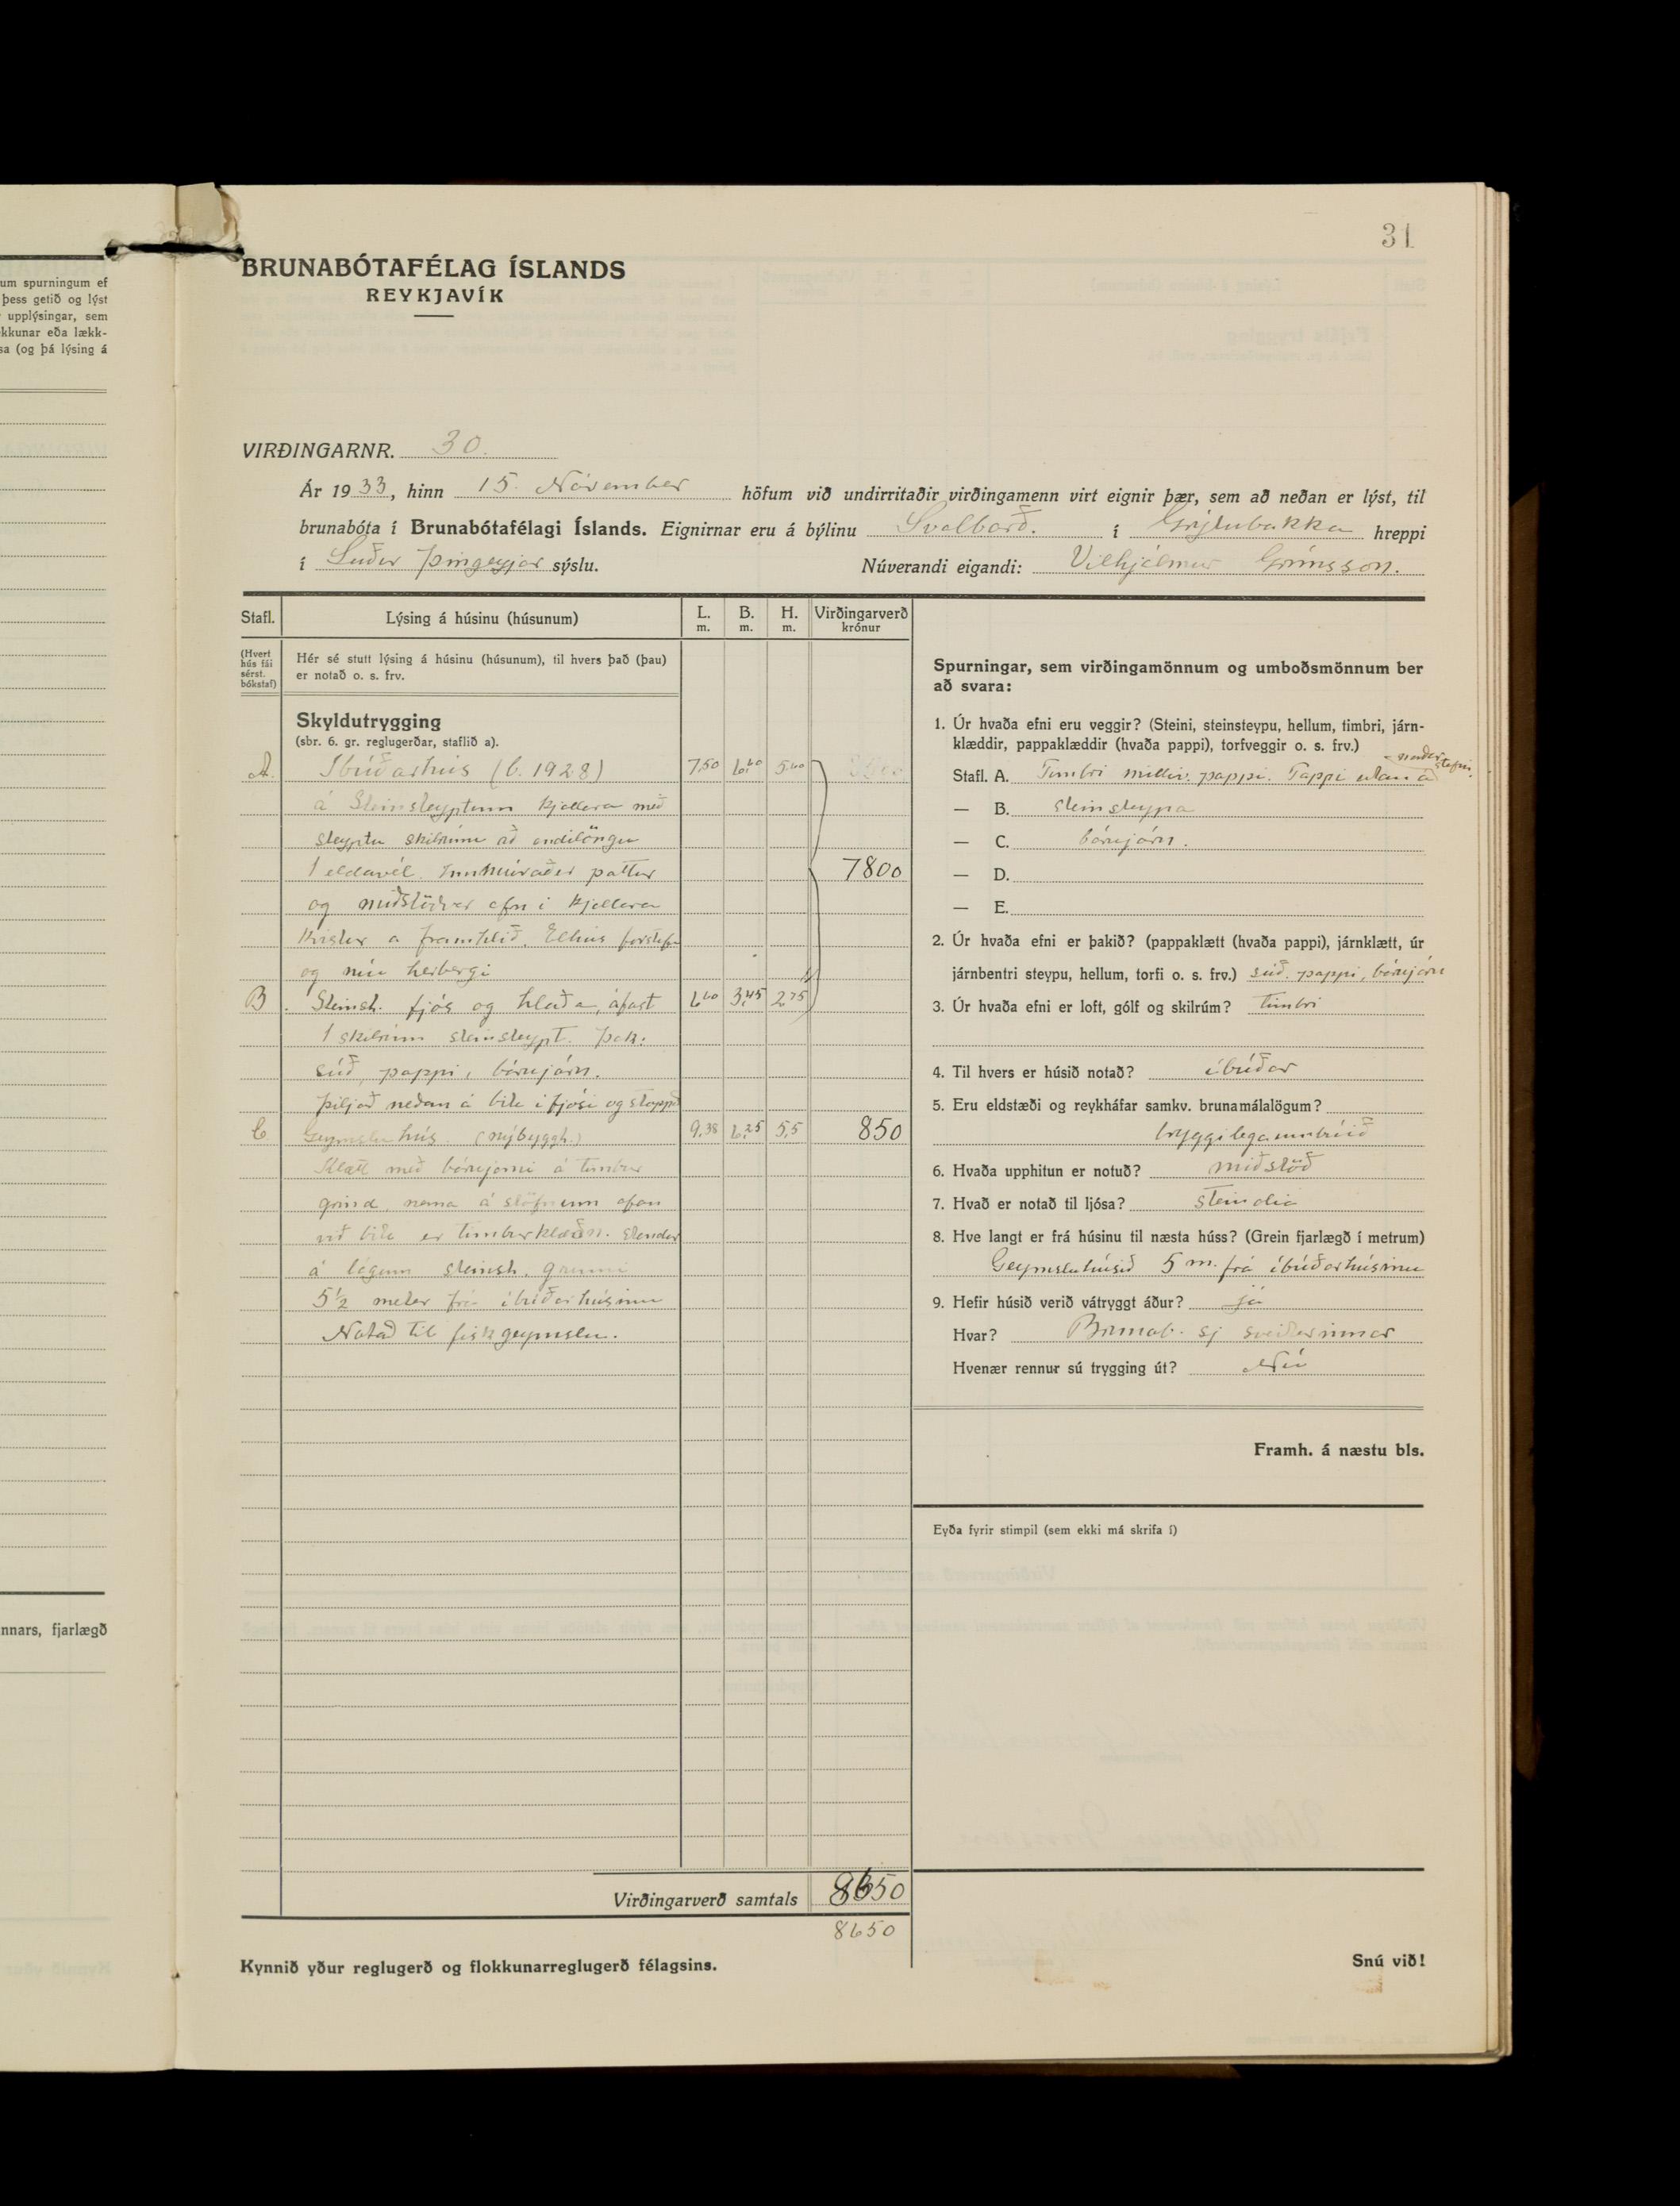 31
um spurningum ef
þess getið og lýst
upplýsingar, sem
kkunar eða lækk-
sa (og þá lýsing á
nnars, fjarlægð
BRUNABÓTAFÉLAG ÍSLANDS
REYKJAVÍK
VIRÐINGARNR. 30.
Ár 1933, hinn 15. Nóvember höfum við undirritaðir virðingamenn virt eignir þær, sem að neðan er lýst, til
brunabóta í Brunabótafélagi Íslands. Eignirnar eru á býlinu Svalbarð. í Grýtubakka hreppi
í Suður Þingeyjar sýslu. Núverandi eigandi: Vilhjálmur Grímsson.
Stafl. Lýsing á húsinu (húsunum) L. m. B. m. H. m. Virðingarverð krónur
(Hvert hús fái sérst. bókstaf)
Hér sé stutt lýsing á húsinu (húsunum), til hvers það (þau)
er notað o. s. frv.
Skyldutrygging
(sbr. 6. gr. reglugerðar, staflið a).
A. Íbúðarhús (b. 1928) 7,50 6,60 5,60
á Steinsteyptum kjallara með
steyptu skilrúmi að endilöngu
1 eldavél. Innmúraður pottur 7800
og miðstöðvar ofn í kjallara
Kvistur á framhlið. Elhús forstofa
og níu herbergi
B. Steinst. fjós og hlaða, áfast 6,60 3,45 2,75
1 skilrúm steinsteypt. Þak:
súð, pappi, bárujárn.
þiljað neðan á bita í fjósi og stoppað
C Geymsluhús. (nýbyggh.) 9,38 6,25 5,5 850
Klætt með bárujárni á timbur
grind, nema á stöfnum ofan
við bita er timburklæðn. Stendur
á lágum steinst. grunni
5½ meter frá íbúðarhúsinu
Notað til fiskgeymslu.
Virðingarverð samtals 8650
8650
Kynnið yður reglugerð og flokkunarreglugerð félagsins.
Spurningar, sem virðingamönnum og umboðsmönnum ber
að svara:
1. Úr hvaða efni eru veggir? (Steini, steinsteypu, hellum, timbri, járn-
klæddir, pappaklæddir (hvaða pappi), torfveggir o. s. frv.)
Stafl. A. Timbri milliv. pappi. Pappi utan á
— B. steinsteypa
— C. bárujárn.
— D.
— E.
2. Úr hvaða efni er þakið? (pappaklætt (hvaða pappi), járnklætt, úr
járnbentri steypu, hellum, torfi o. s. frv.) súð, pappi, bárujárn
3. Úr hvaða efni er loft, gólf og skilrúm? timbri
4. Til hvers er húsið notað? íbúðar
5. Eru eldstæði og reykháfar samkv. brunamálalögum?
tryggilega umbúið
6. Hvaða upphitun er notuð? miðstöð
7. Hvað er notað til ljósa? steinolía
8. Hve langt er frá húsinu til næsta húss? (Grein fjarlægð í metrum)
Geymsluhúsið 5 m. frá íbúðarhúsinu
9. Hefir húsið verið vátryggt áður? já
Hvar? Brunab. sj sveitarinnar
Hvenær rennur sú trygging út? Nú
Framh. á næstu bls.
Eyða fyrir stimpil (sem ekki má skrifa í)
Snú við!